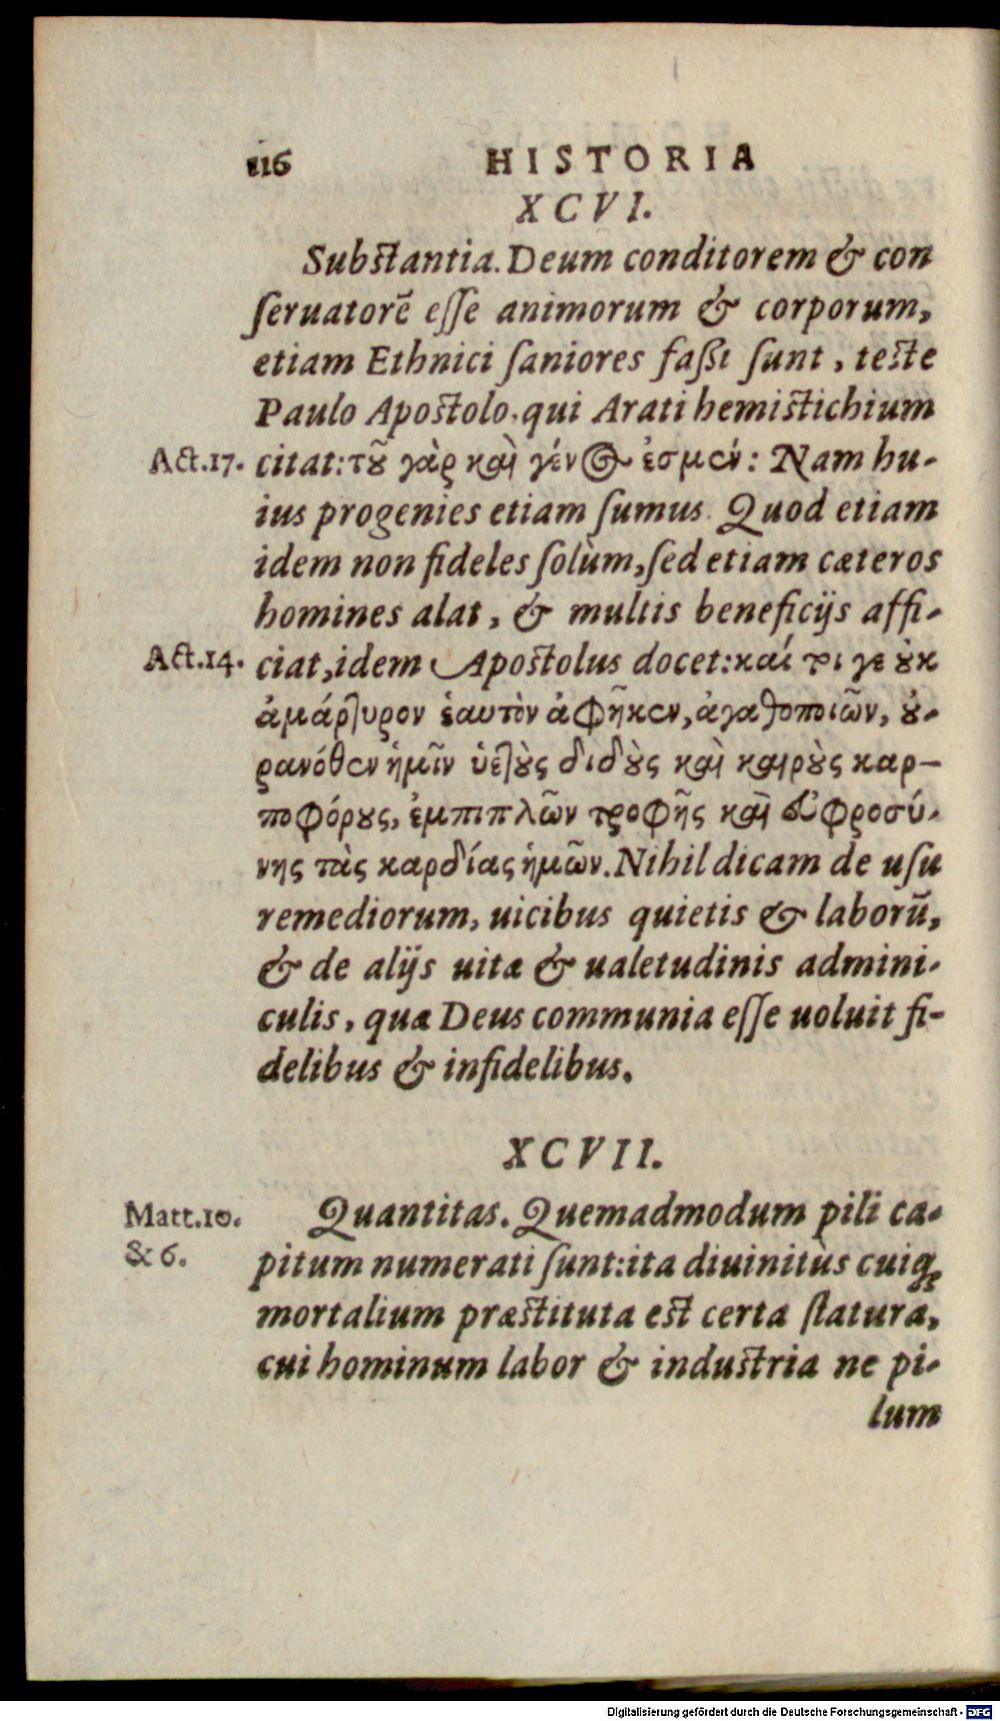 116 HISTORIA
XCVI.
Substantia. Deum conditorem & con
ſeruatorē eſſe animorum & corporum,
etiam Ethnici ſaniores faßi ſunt, teste
Paulo Apostolo, qui Arati hemistichium
Act.17. citat: τοῦ γὰρ καὶ γένος ἐσμέν: Nam hu-
ius progenies etiam ſumus. Quod etiam
idem non fideles ſolùm, ſed etiam cæteros
homines alat, & multis beneficijs affi-
Act.14. ciat, idem Apostolus docet: καί τοι γε οὐκ
ἀμάρτυρον ἑαυτὸν ἀφῆκεν, ἀγαθοποιῶν, οὐ-
ρανόθεν ἡμῖν ὑετοὺς διδοὺς καὶ καιροὺς καρ-
ποφόρους, ἐμπιπλῶν τροφῆς καὶ εὐφροσύ-
νης τὰς καρδίας ἡμῶν. Nihil dicam de uſu
remediorum, uicibus quietis & laborū,
& de alijs uitæ & ualetudinis admini-
culis, quæ Deus communia eſſe uoluit fi-
delibus & infidelibus.
XCVII.
Matt.10. Quantitas. Quemadmodum pili ca-
& 6. pitum numerati ſunt: ita diuinitus cuiq́;
mortalium præstituta est certa ſtatura,
cui hominum labor & industria ne pi-
lum
Digitalisierung gefördert durch die Deutsche Forschungsgemeinschaft - DFG